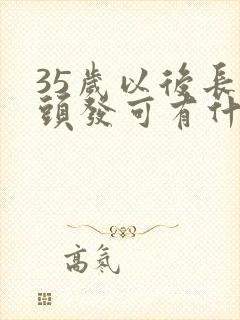 35歲以後長
頭發可有什
高氣